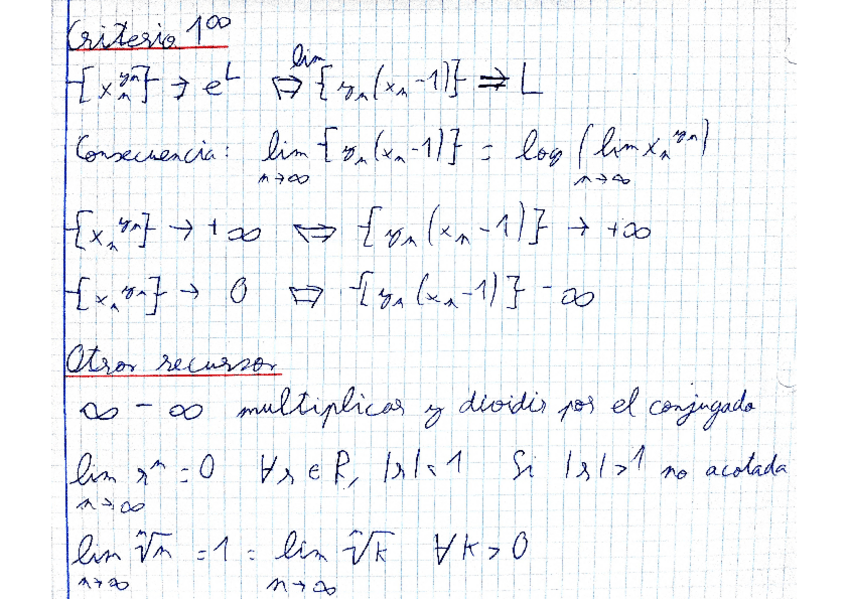 Criterio 1^∞
{x_n^{y_n}} → e^L ⇔ lim {y_n(x_n-1)} ⇒ L
Consecuencia: lim_{n→∞} {y_n(x_n-1)} = log (lim_{n→∞} x_n^{y_n})
{x_n^{y_n}} → +∞ ⇔ {y_n(x_n-1)} → +∞
{x_n^{y_n}} → 0 ⇔ {y_n(x_n-1)} -∞
Otros recursos
∞ - ∞ multiplicar y dividir por el conjugado
lim_{n→∞} r^n = 0 ∀r∈R, |r|<1 Si |r|>1 no acotada
lim_{n→∞} ⁿ√n = 1 = lim_{n→∞} ⁿ√k ∀k>0